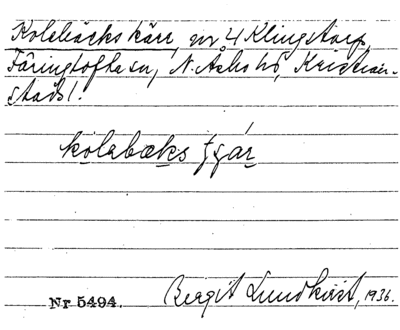 Kolebäckskärr, nr 4 Klingstorp,
Färingtofta sn, N. Åsbo hd, Kristian-
stads l.
kolabæks ʄár
Nr 5494.
Bergit Lundkvist, 1936.